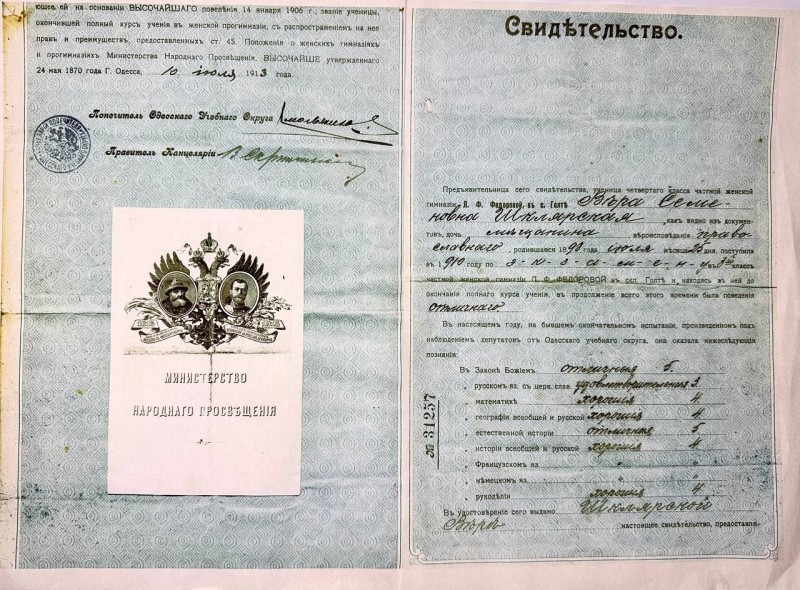 ющее ей на основанiи ВЫСОЧАЙШАГО повелѣнiя 14 января 1906 г., званiе ученицы,
окончившей полный курс ученiя въ женской прогимназiи, съ распространенiемъ на нее
правъ и преимуществъ, предоставленныхъ ст. 45. Положенiя о женскихъ гимназiяхъ
и прогимназiяхъ Министерства Народнаго Просвѣщенiя, ВЫСОЧАЙШЕ утвержденнаго
24 мая 1870 года Г. Одесса, 10 iюля 1913 года.
Попечитель Одесскаго Учебнаго Округа
Правитель Канцелярiи
МИНИСТЕРСТВО
НАРОДНАГО ПРОСВѢЩЕНIЯ
Свидѣтельство.
Предъявительница сего свидѣтельства, ученица четвертаго класса частной женской
гимназiи Л. Ф. Федоровой, въ с. Голтѣ Вѣра Семе-
новна Шклярская, какъ видно изъ докумен-
товъ, дочь мѣщанина вѣроисповѣданiя право-
славнаго, родившаяся 1890 года iюля мѣсяца 25 дня, поступила
въ 1910 году по э-к-з-а-м-е-н-у въ 3й классъ
частной женской гимназiи Л. Ф. ФЕДОРОВОЙ въ сел. Голтѣ и, находясь въ ней до
окончанiя полнаго курса ученiя, въ продолженiе всего этого времени была поведенiя
отличнаго.
Въ настоящемъ году, на бывшемъ окончательномъ испытанiи, произведенномъ подъ
наблюденiемъ депутатовъ отъ Одесскаго учебнаго округа, она оказала нижеслѣдующiя
познанiя:
Въ Законѣ Божiемъ отличныя 5.
„ русскомъ яз. съ церк.слав. удовлетворительныя 3.
„ математикѣ хорошiя 4
„ географiи всеобщей и русской хорошiя 4
„ естественной исторiи отличныя 5
„ исторiи всеобщей и русской хорошiя 4
„ Французскомъ яз „ „
„ нѣмецкомъ яз „ „
„ рукодѣлiи хорошiя 4
№ 31257
Въ удостовѣренiе сего выдано Шклярской
Вѣрѣ настоящее свидѣтельство, предоставля-